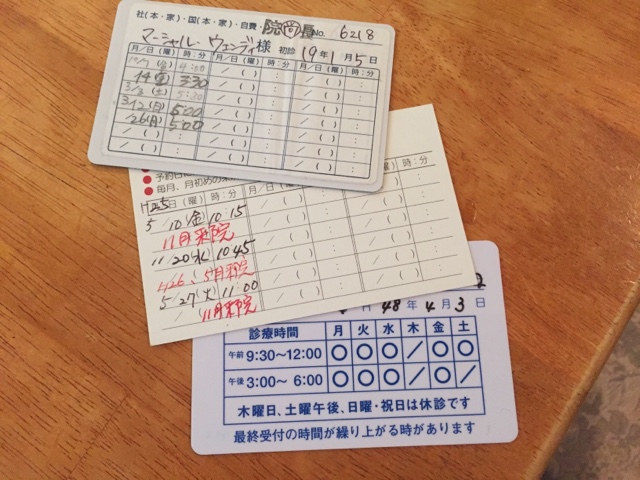 社(本・家)・国(本・家)・自費・院長 No. 6218
マーシャル・ウェンディ様 初診 19年1月5日
月／日(曜) 時：分 月／日(曜) 時：分 月／日(曜) 時：分
3/12(月) 5:00
/26(月) 5:00
予約日
毎月、月初めの
H25日(曜) 時：分 月／日(曜) 時：分
5/10(金) 10:15
11月来院
11/20(水) 10:45
5月来院
5/27(火) 11:00
11月来院
48年4月3日
診療時間 月 火 水 木 金 土
午前 9:30～12:00 ○ ○ ○ ／ ○ ○
午後 3:00～ 6:00 ○ ○ ○ ／ ○ ／
木曜日、土曜午後、日曜・祝日は休診です
最終受付の時間が繰り上がる時があります